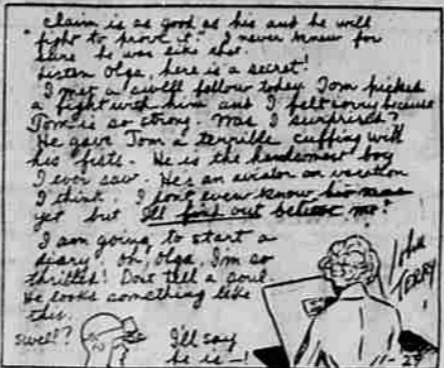 claim is as good as his and he will
fight to prove it." I never knew for
sure he was like that.
Listen Olga, here is a secret!
I met a swell fellow today. Tom picked
a fight with him and I felt sorry because
Tom is so strong. Was I surprised?
He gave Tom a terrible cuffing with
his fists. He is the handsomest boy
I ever saw. He's an aviator on vacation
I think. I don't even know his name
yet but I'll find out believe me!
I am going to start a
diary, oh, Olga, I'm so
thrilled! Don't tell a soul.
He looks something like
this.
swell?
I'll say
he is—!
John
TERRY
11-29